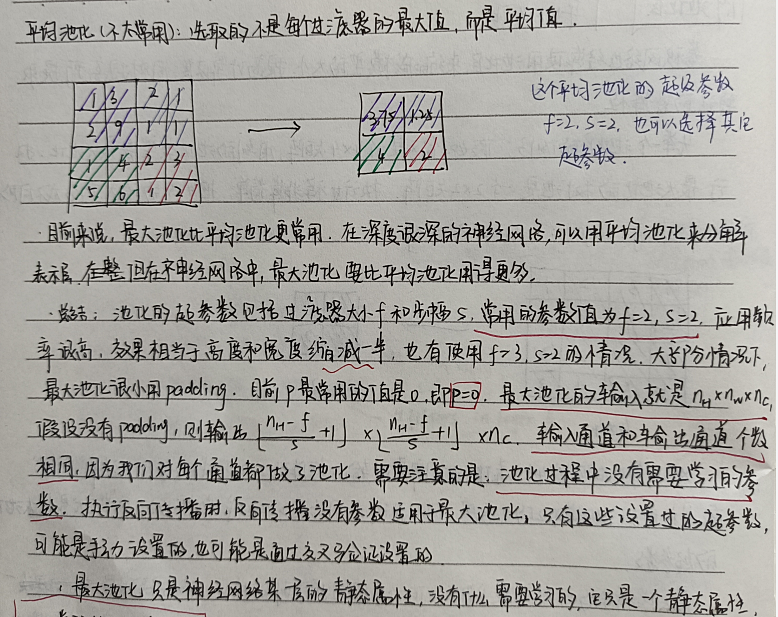 平均池化(不太常用):选取的不是每个过滤器的最大值,而是平均值.
1 3 2 1
2 9 1 1
1 4 2 3
5 6 1 2
3.75 1.25
4 2
这个平均池化的超级参数
f=2, s=2, 也可以选择其它
超参数.
·目前来说,最大池化比平均池化更常用.在深度很深的神经网络,可以用平均池化来分解
表示层.在整个神经网络中,最大池化要比平均池化用得更多.
·总结:池化的超参数包括过滤器大小f和步幅s,常用的参数值为f=2,s=2,应用频
率很高,效果相当于高度和宽度缩减一半,也有使用f=3,s=2的情况.大部分情况下,
最大池化很小用padding.目前p最常用的值是0,即p=0.最大池化的输入就是nH×nW×nC,
假设没有padding,则输出⌊(nH-f)/s+1⌋×⌊(nH-f)/s+1⌋×nC.输入通道和输出通道个数
相同,因为我们对每个通道都做了池化.需要注意的是:池化过程中没有需要学习的参
数.执行反向传播时,反向传播没有参数适用于最大池化,只有这些设置过的超参数,
可能是手动设置的,也可能是通过交叉验证设置的
·最大池化只是神经网络某一层的静态属性,没有什么需要学习的,它只是一个静态属性.